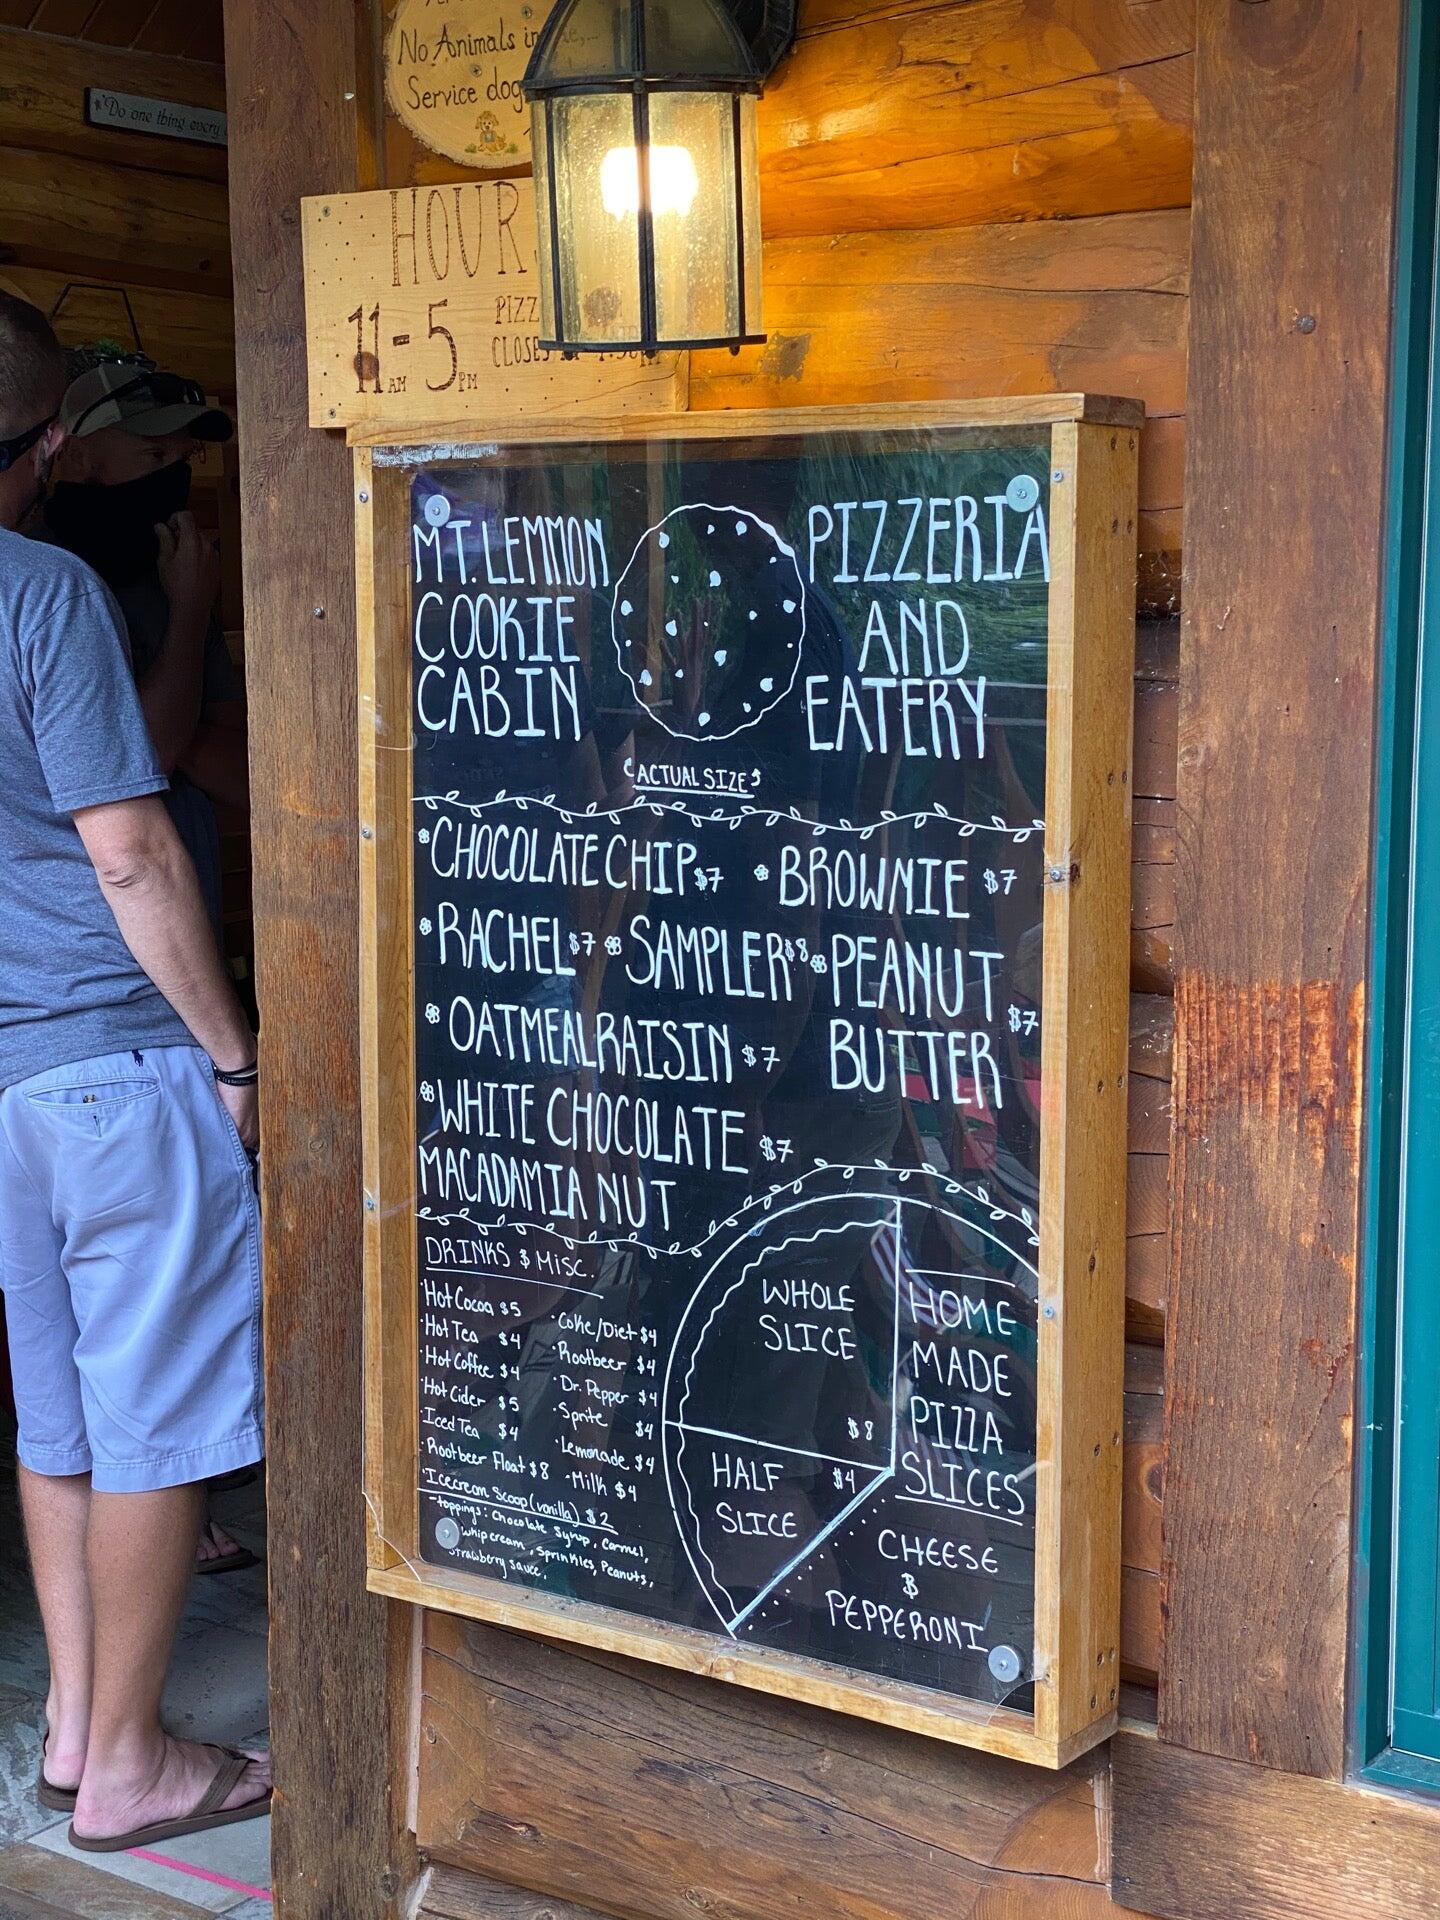 No Animals in
Service dog
"Do one thing every
HOUR
11AM-5PM
PIZZ
CLOSES
MT. LEMMON
COOKIE
CABIN
PIZZERIA
AND
EATERY
ACTUAL SIZE
CHOCOLATE CHIP $7
BROWNIE $7
RACHEL $7
SAMPLER $8
PEANUT
BUTTER $7
OATMEAL RAISIN $7
WHITE CHOCOLATE
MACADAMIA NUT $7
DRINKS & MISC.
·Hot Cocoa $5
·Hot Tea $4
·Hot Coffee $4
·Hot Cider $5
·Iced Tea $4
·Rootbeer Float $8
·Coke/Diet $4
·Rootbeer $4
·Dr. Pepper $4
·Sprite $4
·Lemonade $4
·Milk $4
·Icecream Scoop (vanilla) $2
-toppings: Chocolate Syrup, Carmel,
whip cream, Sprinkles, Peanuts,
Strawberry sauce,
WHOLE
SLICE
$8
HALF $4
SLICE
HOME
MADE
PIZZA
SLICES
CHEESE
&
PEPPERONI